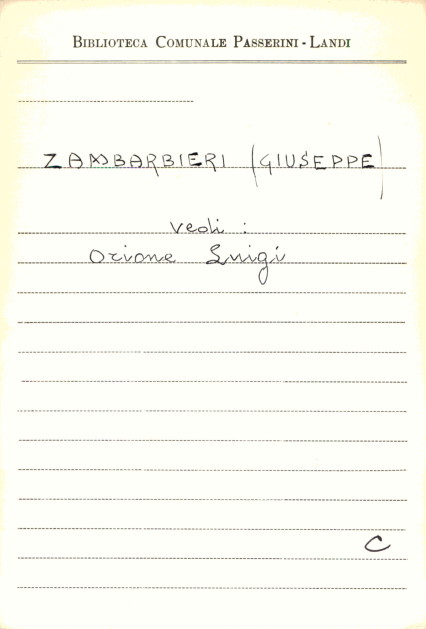 BIBLIOTECA COMUNALE PASSERINI - LANDI
ZAMBARBIERI (GIUSEPPE)
vedi :
Orione Luigi
C